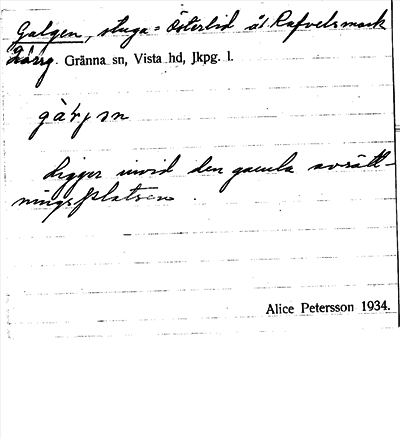 Galgen, stuga = Österlid å Rafvelsmark
Gränna sn, Vista hd, Jkpg. l.
gàrjsn
Ligger invid den gamla avrätt-
ningsplatsen.
Alice Petersson 1934.